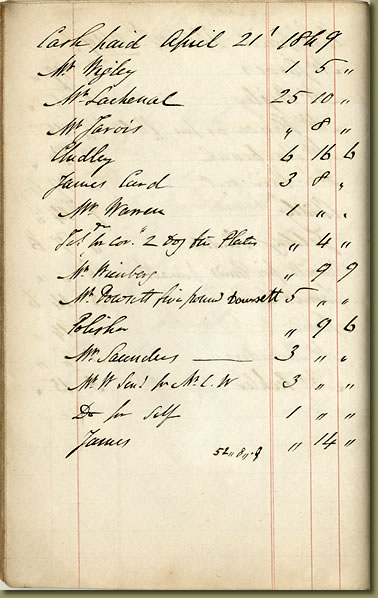 Cash paid April 21st 1849
Mr Wigley 1 5 "
Mr Lachenal 25 10 "
Mr Jarvis " 8 "
Chidley 6 16 6
James Card 3 8 "
Mr Warren 1 " "
for Cor. " 2 Dog Plates " 4 "
Mr Weinberg " 9 9
Mr Dowsett five pound Dowsett 5 " "
Polisher " 9 6
Mr Saunders — 3 " "
Mr W Senr for Mr C. W 3 " "
Do for self 1 " "
James " 14 "
52 " 8 " 9